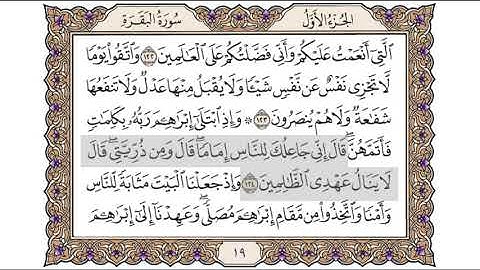 الجزء الأول
سورة البقرة
الَّتِي أَنْعَمْتُ عَلَيْكُمْ وَأَنِّي فَضَّلْتُكُمْ عَلَى الْعَالَمِينَ ١٢٢ وَاتَّقُوا يَوْمًا
لَا تَجْزِي نَفْسٌ عَنْ نَفْسٍ شَيْئًا وَلَا يُقْبَلُ مِنْهَا عَدْلٌ وَلَا تَنْفَعُهَا
شَفَاعَةٌ وَلَا هُمْ يُنْصَرُونَ ١٢٣ ۞ وَإِذِ ابْتَلَىٰ إِبْرَاهِيمَ رَبُّهُ بِكَلِمَاتٍ
فَأَتَمَّهُنَّ ۖ قَالَ إِنِّي جَاعِلُكَ لِلنَّاسِ إِمَامًا ۖ قَالَ وَمِنْ ذُرِّيَّتِي ۖ قَالَ
لَا يَنَالُ عَهْدِي الظَّالِمِينَ ١٢٤ وَإِذْ جَعَلْنَا الْبَيْتَ مَثَابَةً لِلنَّاسِ
وَأَمْنًا وَاتَّخِذُوا مِنْ مَقَامِ إِبْرَاهِيمَ مُصَلًّى ۖ وَعَهِدْنَا إِلَىٰ إِبْرَاهِيمَ
١٩